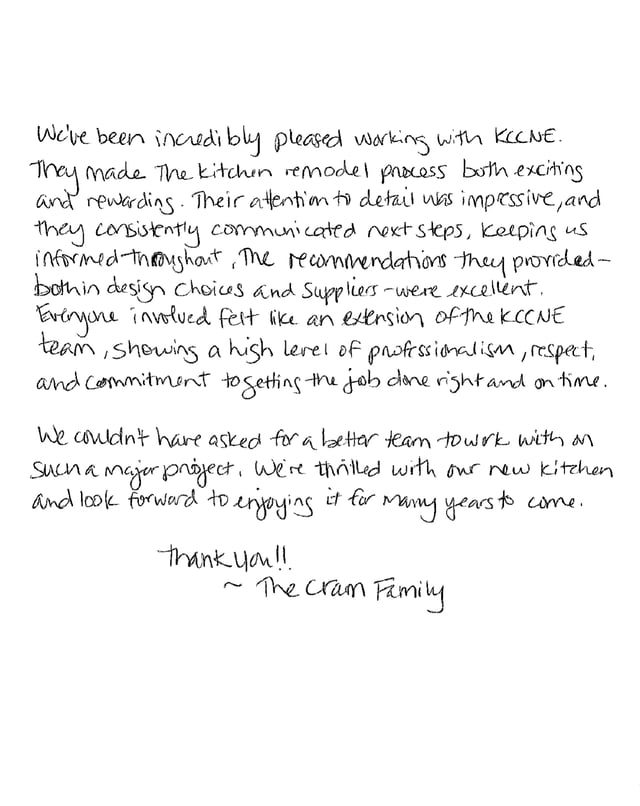 We've been incredibly pleased working with KCCNE.
They made The kitchen remodel process both exciting
and rewarding. Their attention to detail was impressive, and
they consistently communicated next steps, keeping us
informed throughout, The recommendations they provided-
both in design choices and suppliers - were excellent.
Everyone involved felt like an extension of the KCCNE
team, showing a high level of professionalism, respect,
and commitment to getting the job done right and on time.
We couldn't have asked for a better team to work with on
such a major project. We're thrilled with our new kitchen
and look forward to enjoying it for many years to come.
Thank you!!
~ The Cram Family